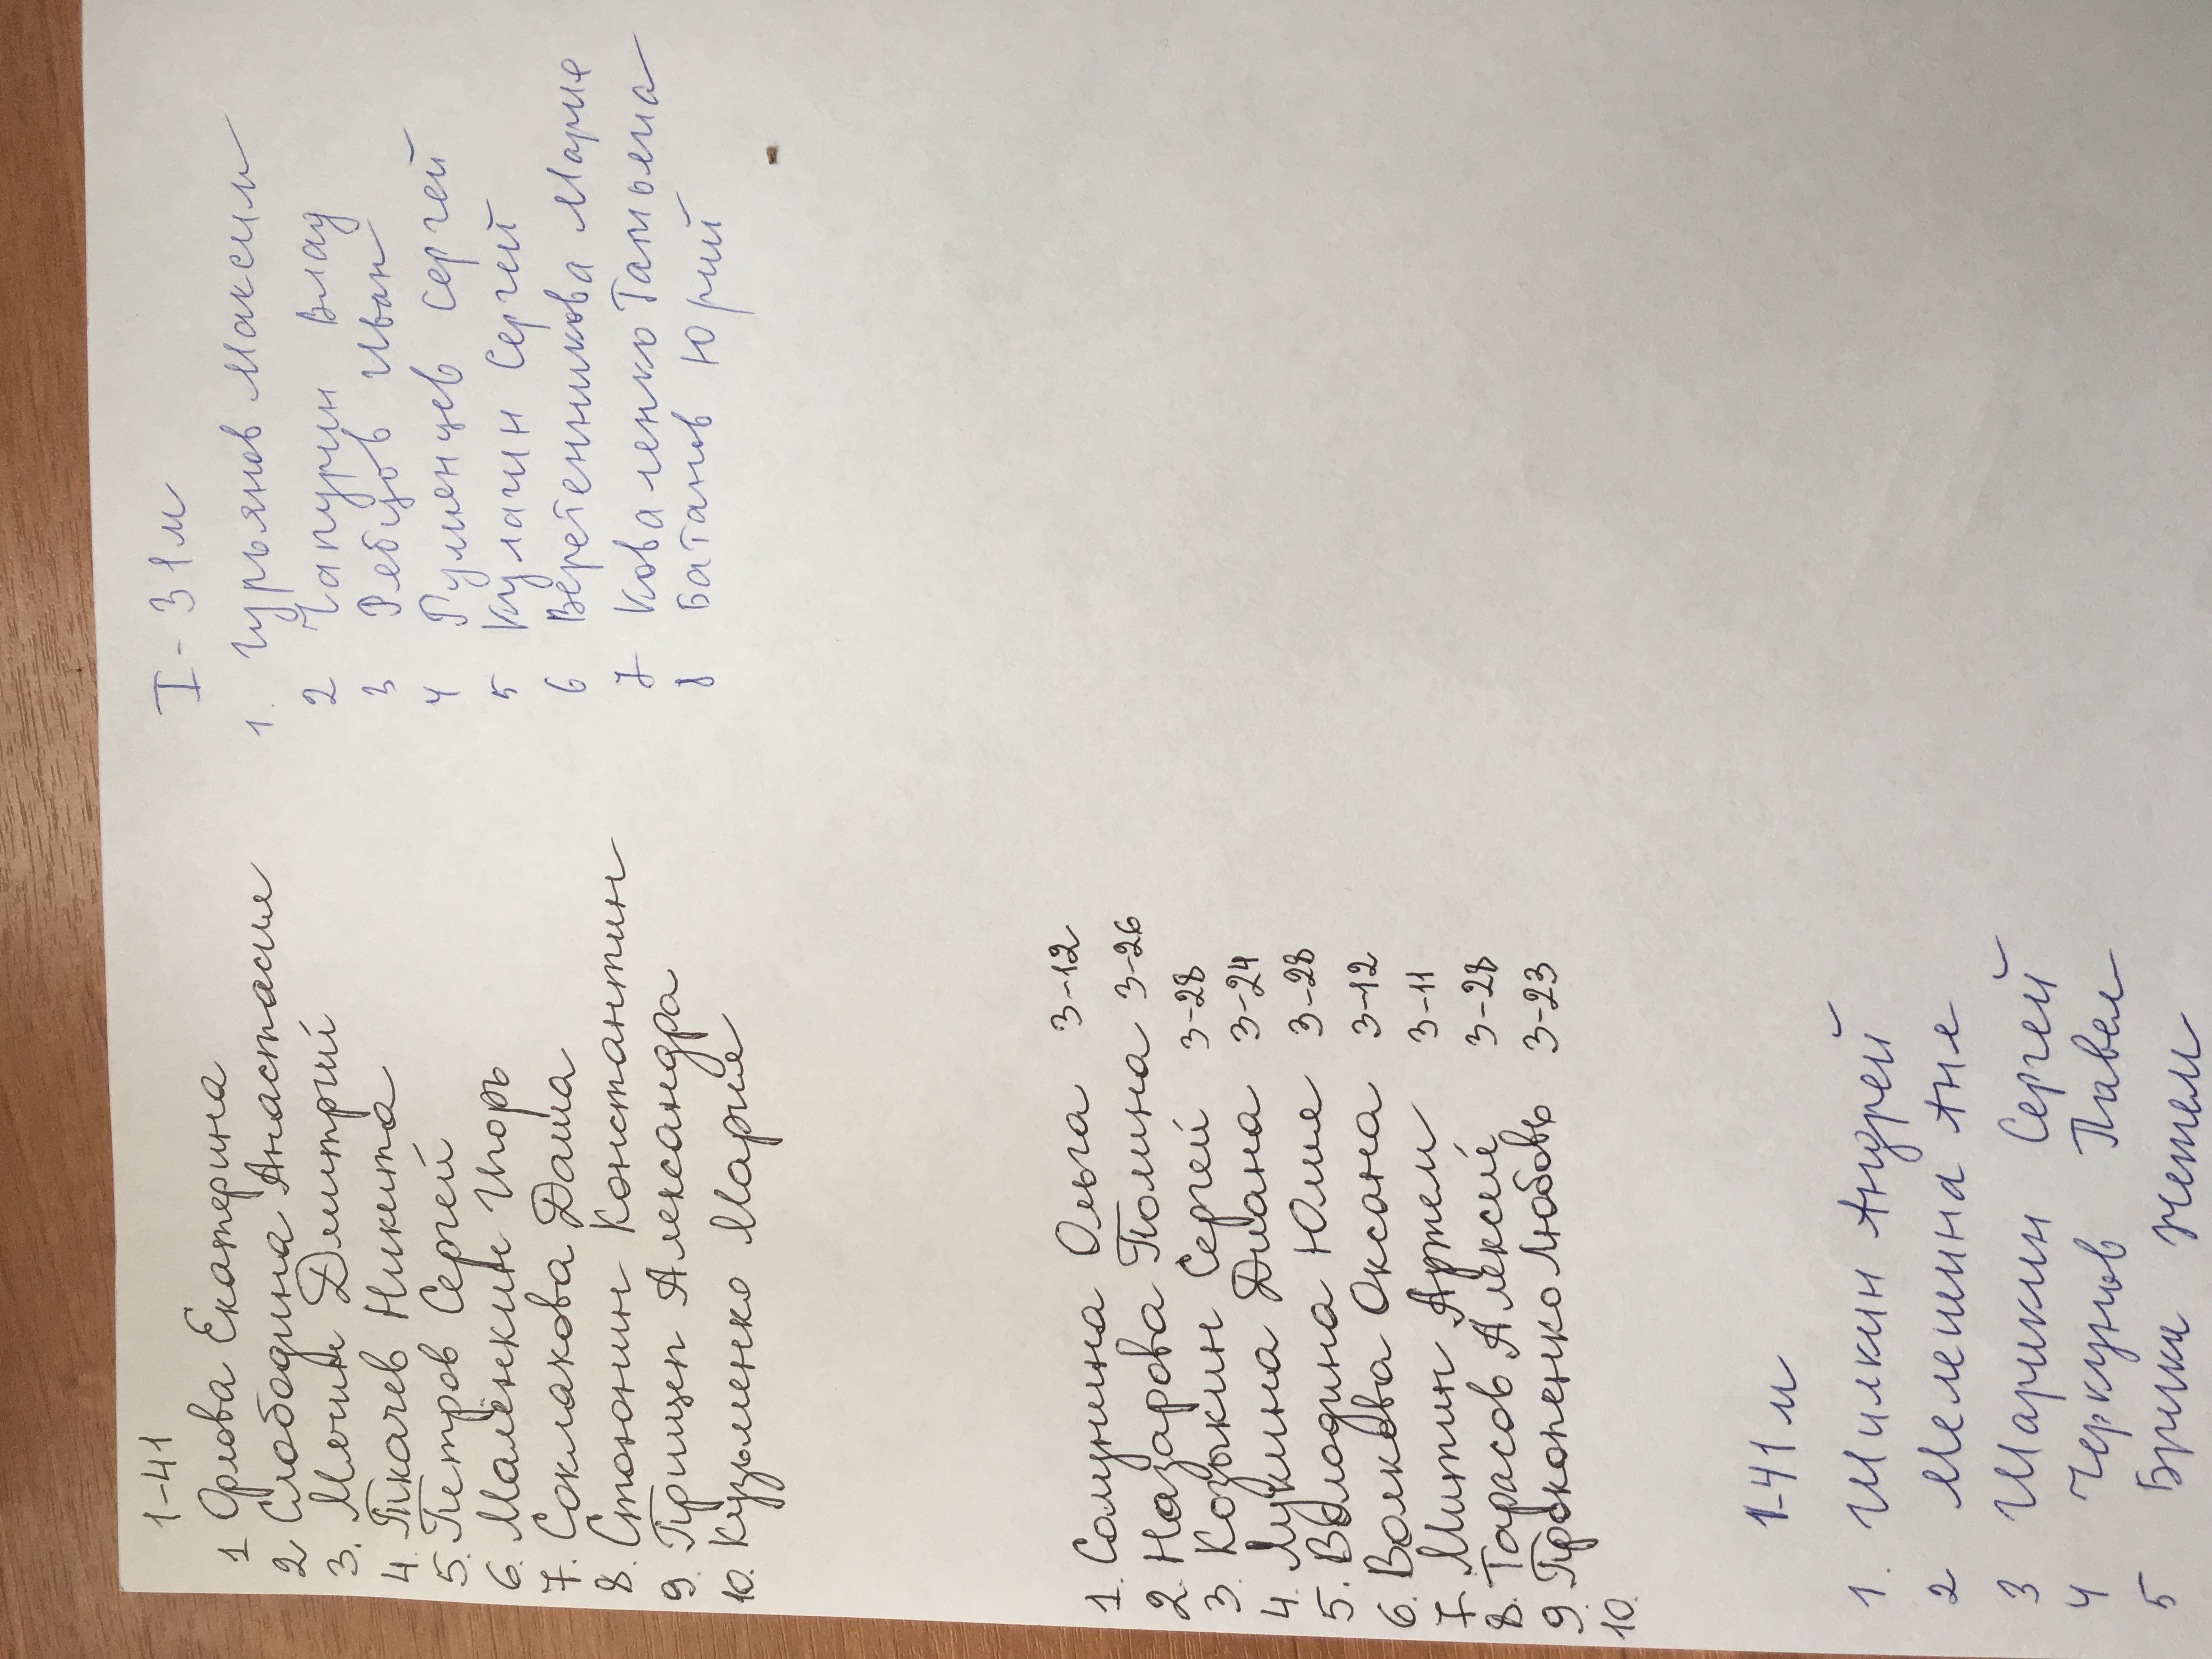 1-41
1 Орлова Екатерина
2 Слободина Анастасия
3. Мочкин Дмитрий
4. Ткачев Никита
5. Петров Сергей
6. Малёнкин Игорь
7. Соклакова Даша
8. Стюнин Константин
9. Грищеп Александра
10. Кузьменко Мария
I-31м
1. Гурьянов Максим
2 Чапурин Влад
3 Ребцов Иван
4 Румянцев Сергей
5 Кулагин Сергей
6 Веретенникова Мария
7 Коваленко Татьяна
8 Батанов Юрий
1. Солунина Ольга 3-12
2. Назарова Полина 3-26
3. Козыкин Сергей 3-28
4. Лукина Диана 3-24
5. Володина Юлия 3-28
6. Волкова Оксана 3-12
7. Митин Артем 3-11
8. Тарасов Алексей 3-28
9. Прокопенко Любовь 3-23
10.
1-41м
1. Илкин Андрей
2 Мелешина Аня
3 Маркин Сергей
4 Черкунов Павел
5 Брики